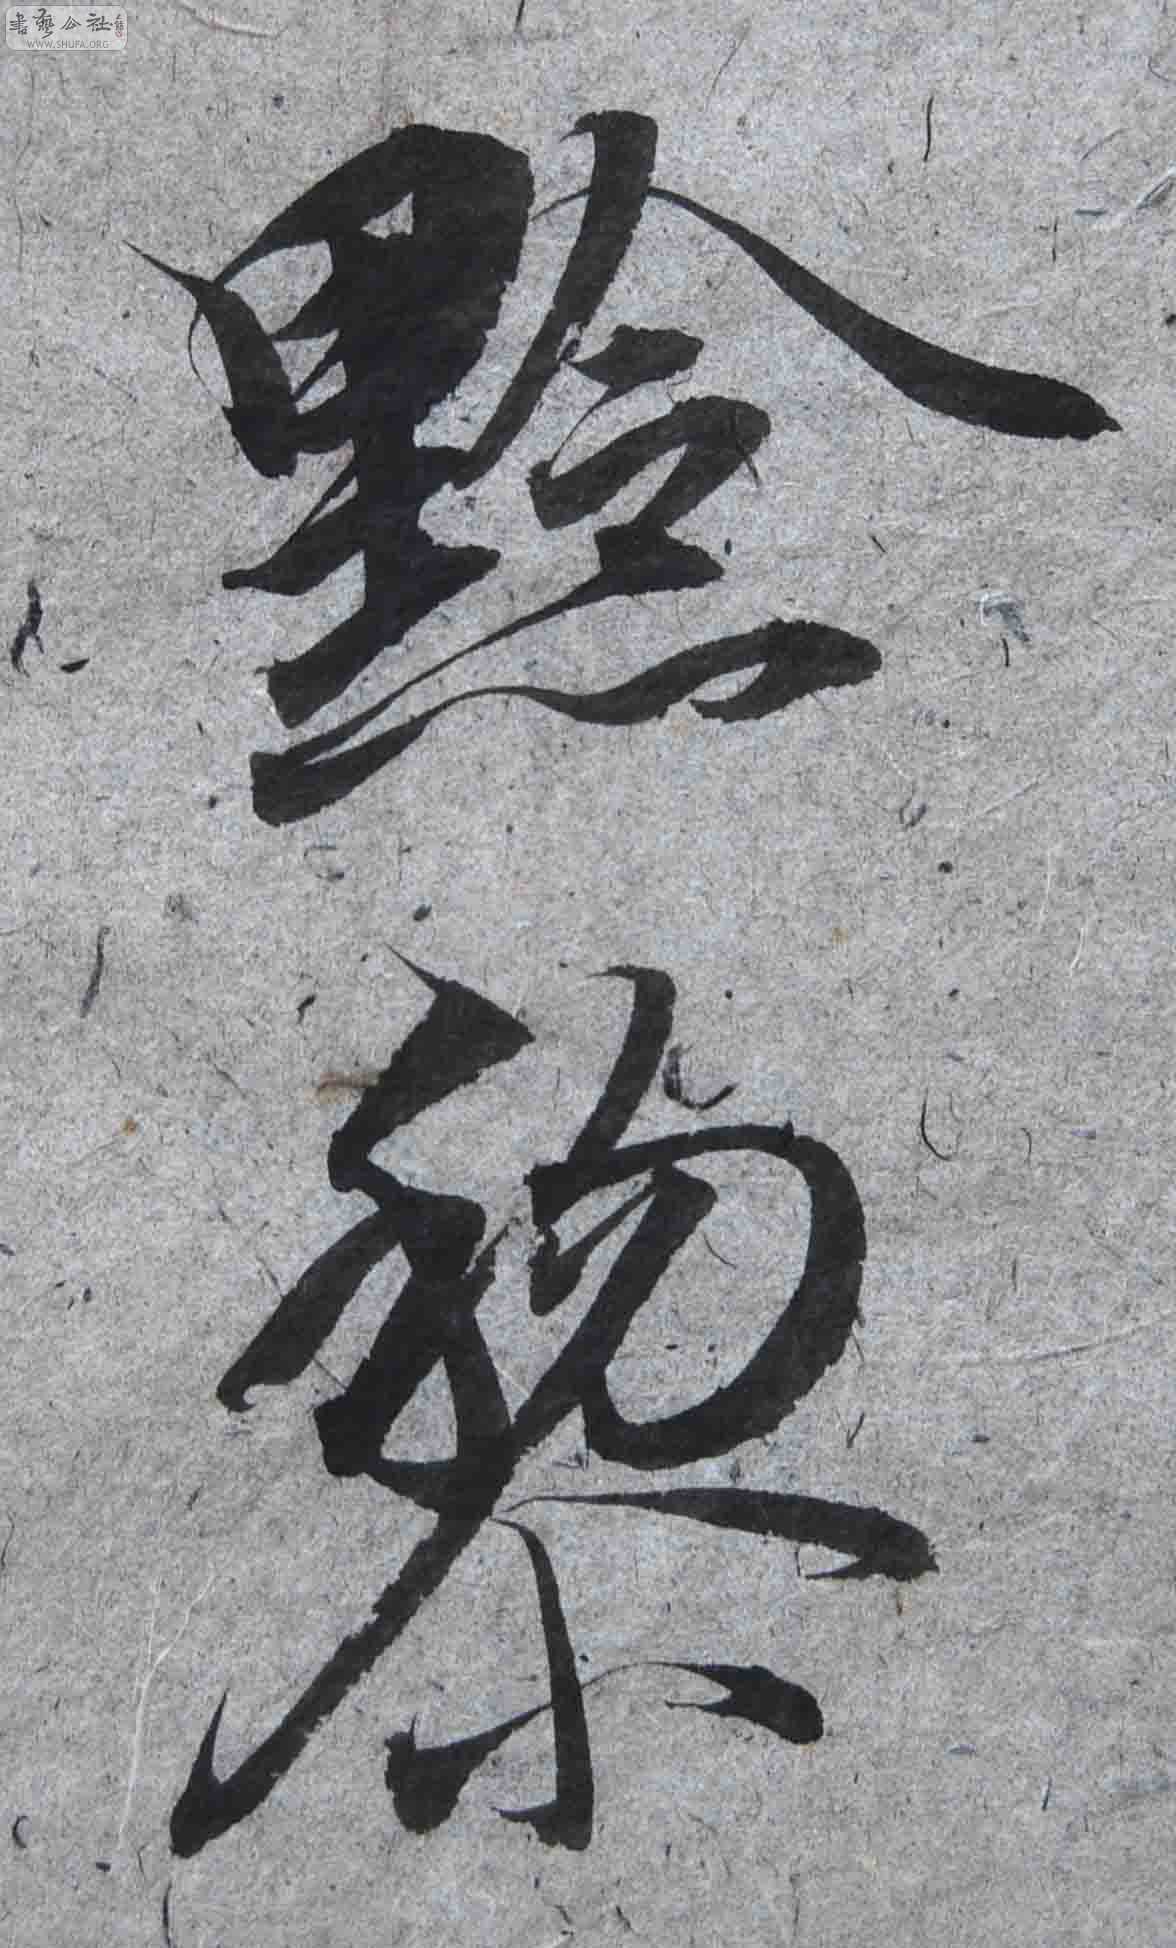 书艺公社
WWW.SHUFA.ORG
黔
黎